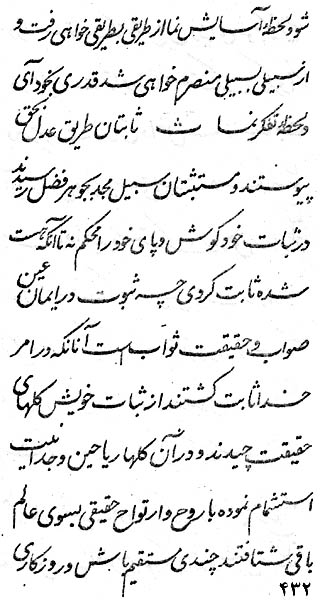 شو و لحظهٔ آسایش نما از طریقی بطریقی خواهی رفت و
از سبیلی بسبیلی منصرم خواهی شد قدری بخود آی
و لحظهٔ تفکر نما ث ثابتان طریق عدل بحق
پیوستند و متثبتان سبیل مجد بجوهر فضل رسیدند
در ثبات خود کوش و پای خود را محکم نه تا آنکه آیت
شده ثابت کردی چه ثبوت در ایمان عین
صواب و حقیقت ثواب است آنانکه در امر
خدا ثابت گشتند از ثبات خویش گلهای
حقیقت چیدند و در آن گلها ریاحین وحدانیت
استشمام نموده با روح و ارتواح حقیقی بسوی عالم
باقی شتافتند چندی مستقیم باش و روزکاری
۴۳۲